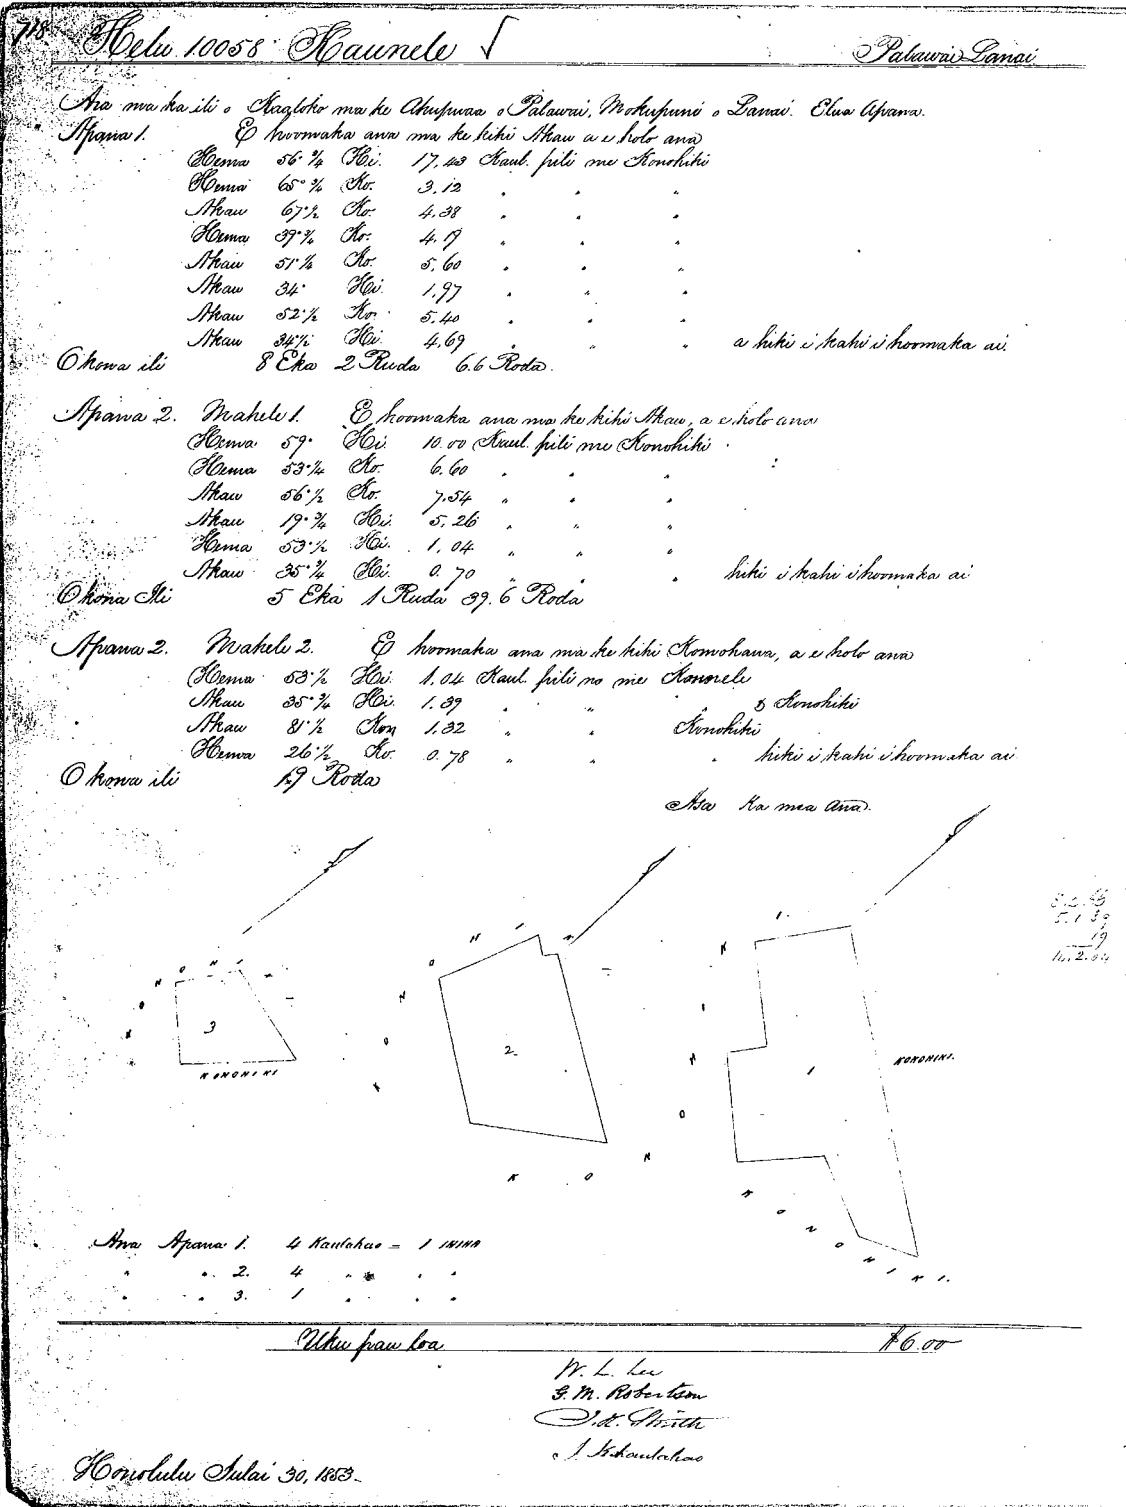 718
Helu 10058 Kaunele √ Palawai Lanai
Aia ma ka ili o ma ke Ahupuaa o Palawai, Mokupuni o Lanai. Elua Apana.
Apana 1. E hoomaka ana ma ke kihi Akau a e holo ana
Hema 56°3/4 Hi. 17.43 Kaul. pili me Konohiki
Hema 65°3/4 Ko. 3.12 " " "
Akau 67°1/2 Ko. 4.38 " " "
Hema 39°3/4 Ko. 4.19 " " "
Akau 51°1/4 Ko. 5.60 " " "
Akau 34° Hi. 1.97 " " "
Akau 52°1/2 Ko. 5.40 " " "
Akau 34°1/2 Hi. 4.69 " " " a hiki i kahi i hoomaka ai.
Okowa ili 8 Eka 2 Ruda 6.6 Roda.
Apana 2. Mahele 1. E hoomaka ana ma ke kihi Akau, a e holo ana
Hema 59° Hi. 10.00 Kaul. pili me Konohiki
Hema 53°1/4 Ko. 6.60 " " "
Akau 56°1/2 Ko. 7.54 " " "
Akau 19°3/4 Hi. 5.26 " " "
Hema 53°1/2 Hi. 1.04 " " "
Akau 35°3/4 Hi. 0.70 " " " hiki i kahi i hoomaka ai
Okona Ili 5 Eka 1 Ruda 39.6 Roda
Apana 2. Mahele 2. E hoomaka ana ma ke kihi Komohana, a e holo ana
Hema 53°1/2 Hi. 1.04 Kaul. pili no me
Akau 35°3/4 Hi. 1.39 " " " Konohiki
Akau 81°1/2 Kom 1.32 " " Konohiki
Hema 26°1/2 Ko. 0.78 " " " hiki i kahi i hoomaka ai
Okowa ili 19 Roda
Asa Ka mea Ana.
KONOHIKI
3
KONOHIKI
2.
KONOHIKI
1
KONOHIKI.
KONOHIKI.
19
Ana Apana 1. 4 Kaulahao = 1 ININA
" " 2. 4 " " "
" " 3. 1 " " "
Uku pau loa $6.00
W. L. Lee
G. M. Robertson
J. H. Smith
J. Kekaulahao
Honolulu Iulai 30, 1853.